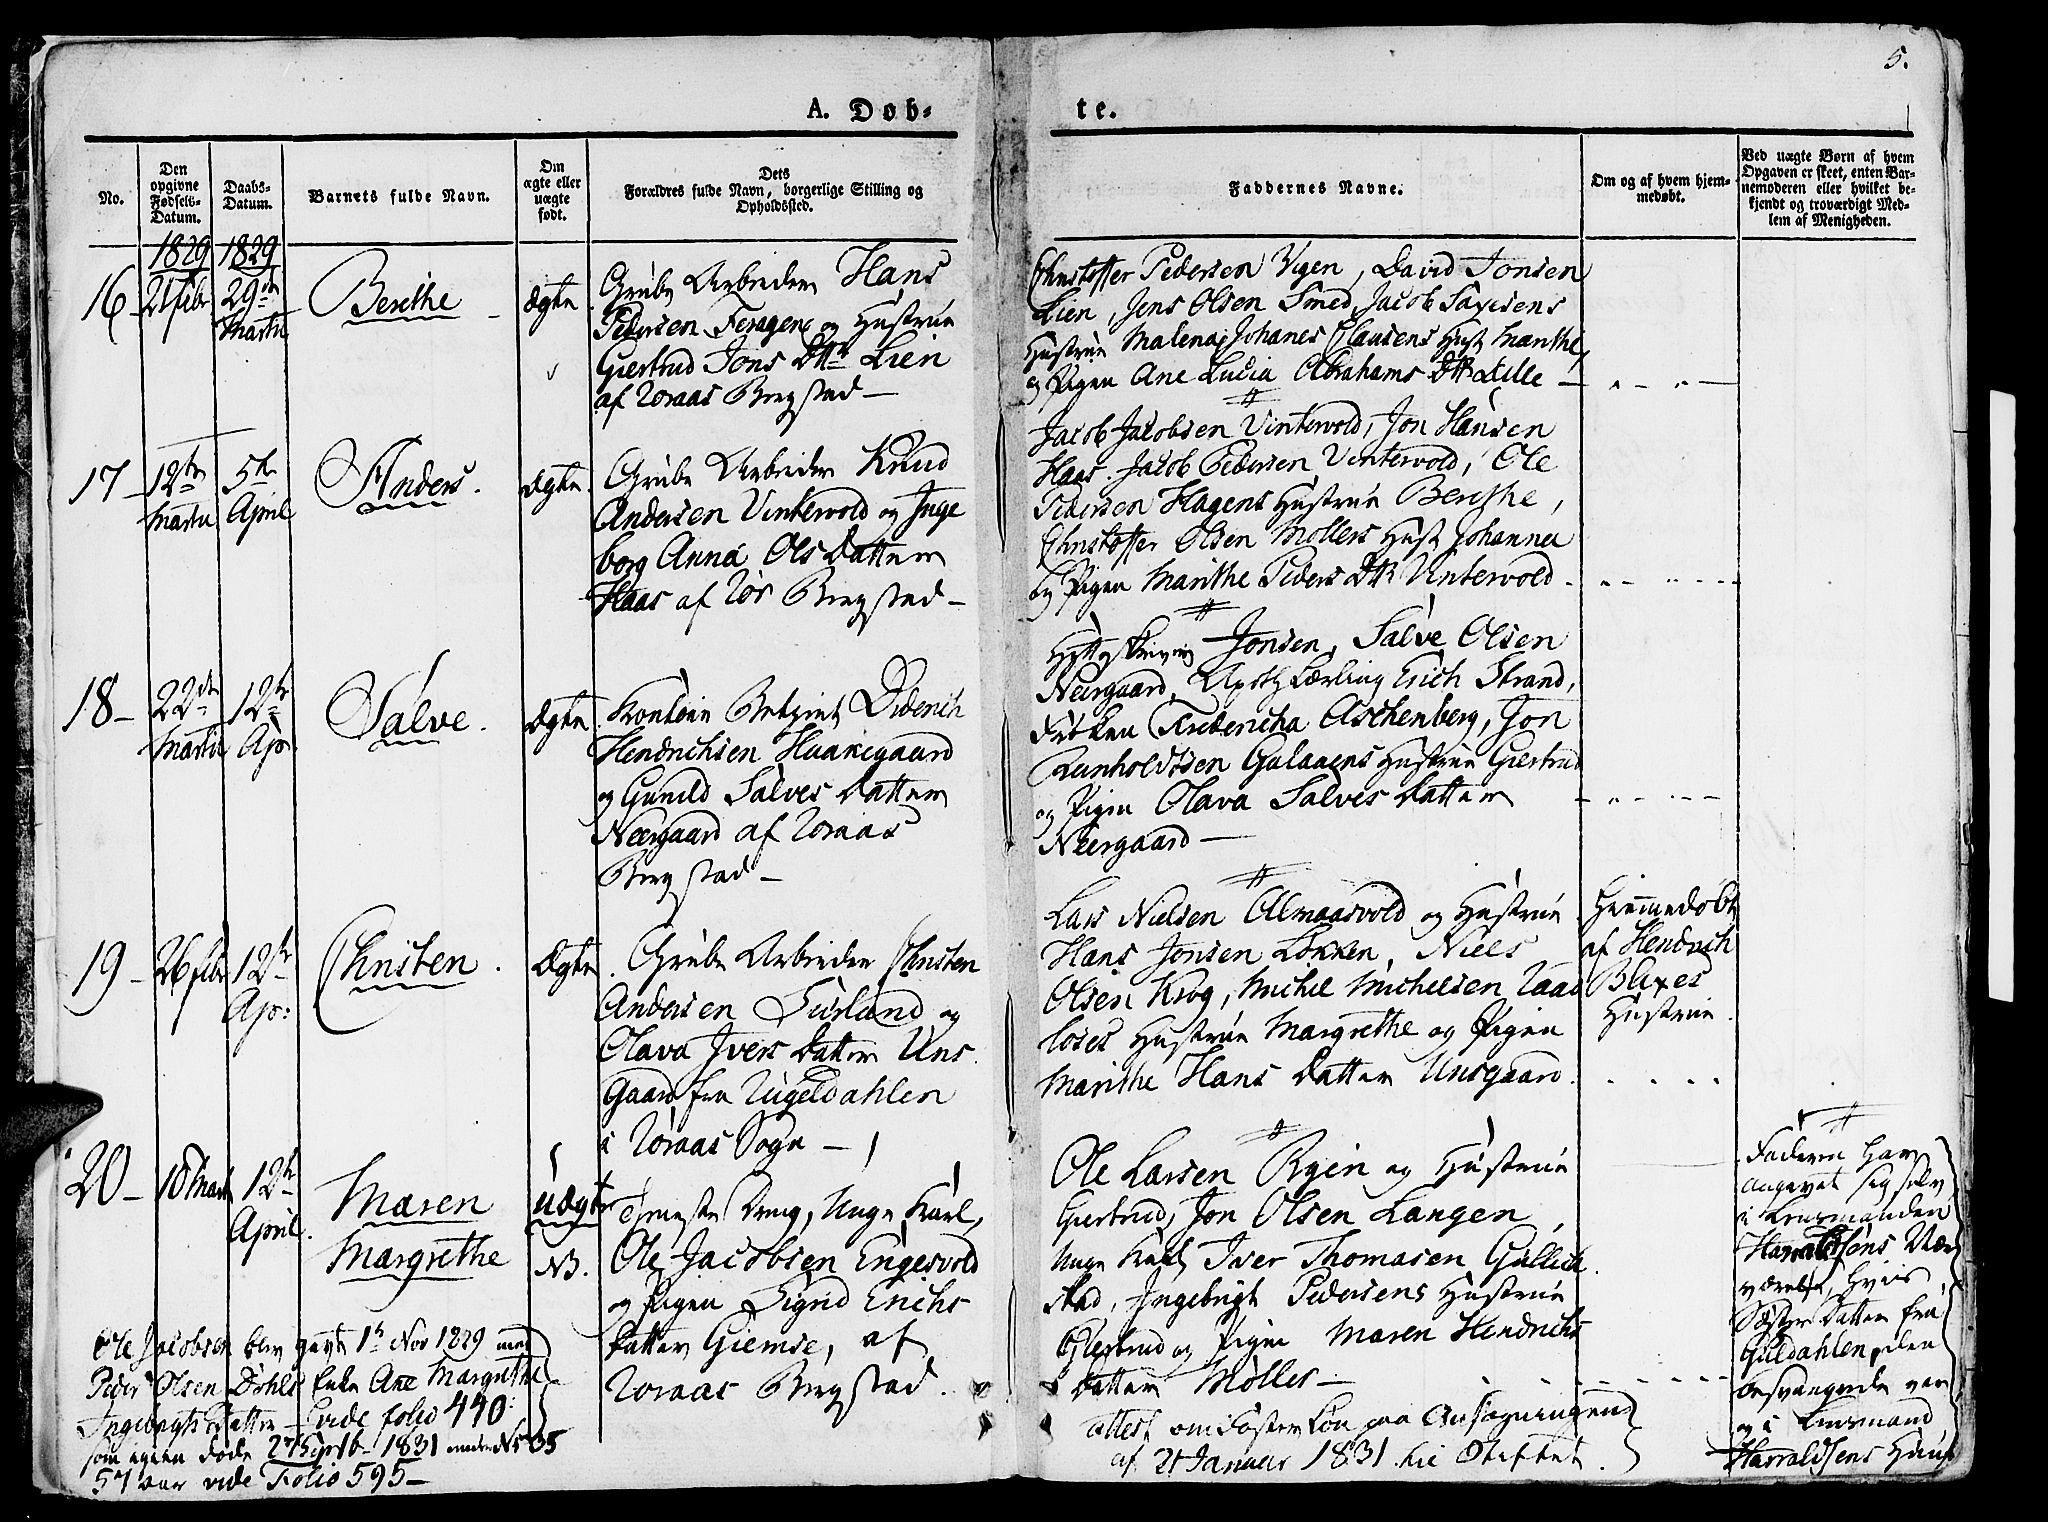 5.
A. Døb-
te.
No.
Den opgivne Fødsels-Datum.
Daabs-Datum.
Barnets fulde Navn.
Om ægte eller uægte født.
Dets Forældres fulde Navn, borgerlige Stilling og Opholdssted.
Faddernes Navne.
Om og af hvem hjem-
medøbt.
Ved uægte Børn af hvem
Opgaven er skeet, enten Bar-
nemoderen eller hvilket be-
kjendt og troværdigt Med-
lem af Menigheden.
1829 1829
16 21 febr 29de Martii
Berethe
Ægte
Grube Arbeider Hans
Pedersen Feragen og Hustrue
Giertrud Jons Dtr Lien
af Røraas Bergstad
Christoffer Pedersen Vigen, David Jonsen
Lien, Jens Olsen Smed, Jacob Saxesens
Hustrue Malena, Johanes Clausens Hust Marithe,
og Pigen Ane Lucia Abrahams Dtr Lille
17 12te Martii 5te April
Anders.
Ægte.
Grube Arbeider Knud
Andersen Vintervold og Inge
borg Anna Ols Datter
Haas af Rør Bergstad
Jacob Jacobsen Vintervold, Jon Hansen
Haas. Jacob Pedersen Vintervold, Ole
Pedersen Hagens Hustrue Berethe,
Christoffer Olsen Møllers Hust Johanna
og Pigen Marithe Peders Dtr Vintervold
18 22de Martii 12te Apr.
Salve.
Ægte
Kontoir Betient Diderich
Hendrichsen Haanegaard
og Gunild Salves Datter
Neergaard af Røraas
Bergstad
Hytteskriver Jonsen, Salve Olsen
Neergaard, Apoth Lærling Erich Strand,
Frøken Fredericha Aschenberg, Jon
Reinholdtsen Galaaens Hustrue Giertrud
og Pigen Olava Salves Datter
Neergaard
19 26 febr 12te Apr:
Christen.
Ægte
Grube Arbeider Christen
Andersen Suuland og
Olava Ivers Datter Uns
Gaard fra Rugeldahlen
i Røraas Sogn
Lars Nielsen Almaasvold og Hustrue
Hans Jonsen Løkken, Niels
Olsen Krog, Michel Michelsen Raad
løses Hustrue Margrethe og Pigen
Marithe Hans Datter Unsgaard.
Hiemmedøbt
af Hendrich
Blixes
Hustrue.
20 18 Marti 12te April.
Maren
Margrethe
Uægte
NB.
Tieneste Dreng, Unge Karl,
Ole Jacobsen Engesvold
og Pigen Sigrid Erichs
Datter Giemse, af
Røraas Bergstad.
Ole Larsen Ryen og Hustrue
Giertrud, Jon Olsen Langen,
Unge Karl Iver Thomasen Gullich
stad, Ingebrigt Pedersens Hustrue
Giertrud og Pigen Maren Hendrichs
Datter Møller
Faderen har
angivet sig selv
i Lensmanden
Harraldsens Nær
værelse, hvis
Søster Datter fra
Guldahlen, den
besvangrede var
og i Lensmand
Harraldsens Huus
Ole Jacobsen blev gevt 1te Nov 1829 med
Peder Olsen Døhls Enke Ane Margrethe
Ingebrigts Datter vide folio 440.
som igien døde 27 Septb 1831 under No 35
57 aar vide Folio 595
attest om Foster Løn paa Ansøgningen
af 21 Januar 1831 til Stiftet.